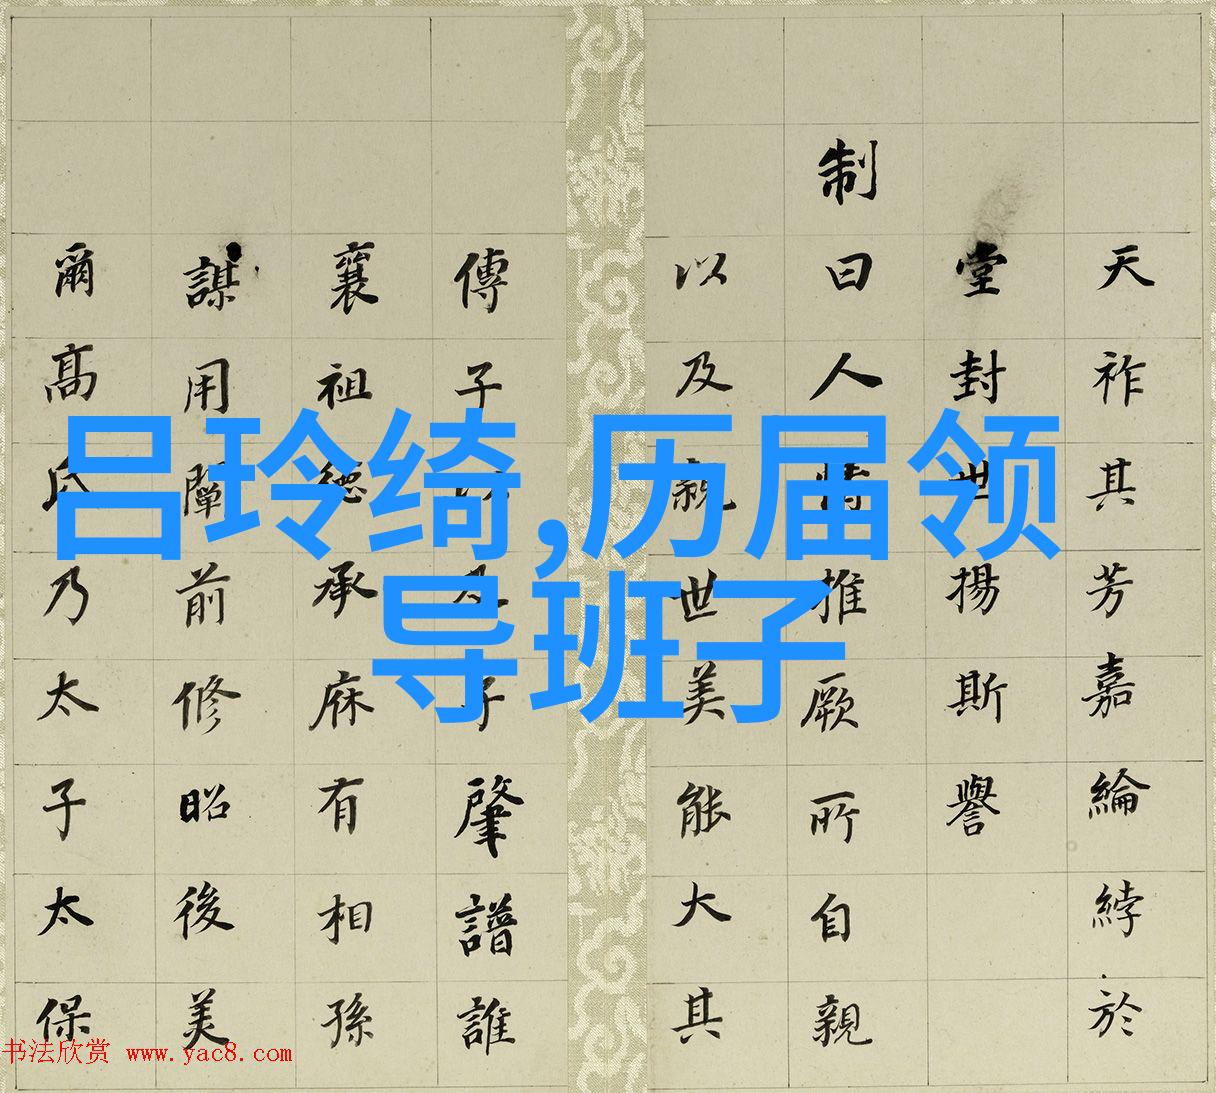 吕玲绮,历届领
导班子
天祚其芳嘉綸綍於
堂封世揚斯譽
制曰人推厥所自親
以及親世美能大其
傳子及子肇譜誰
襄祖承庥有相孫
謀用闡前修昭後美
爾高氏乃太子太保
书法欣赏 www.yac8.com